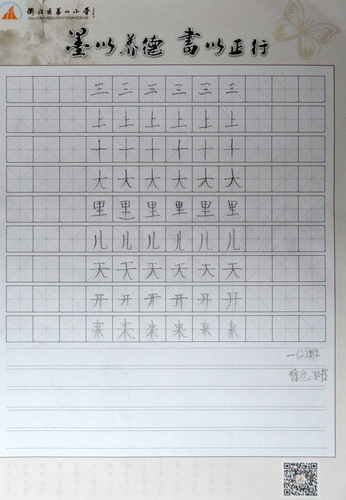 第一小学
墨以养德 书以正行
三三三三三三
上上上上上上
十十十十十十
大大大大大大
里里里里里里
儿儿儿儿儿儿
天天天天天天
开开开开开开
来来来来来来
一(2)班